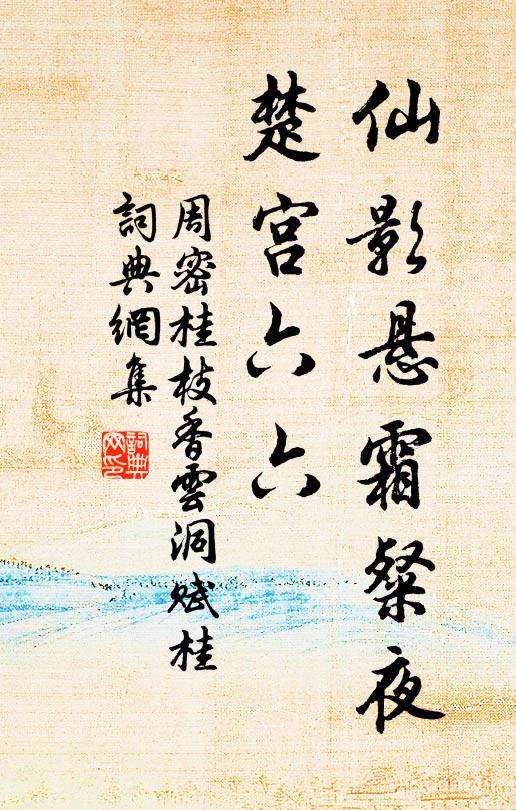 仙影悬霜粲夜
楚宫六六
周密桂枝香雲洞赋桂
詞典網集
詞典
网印